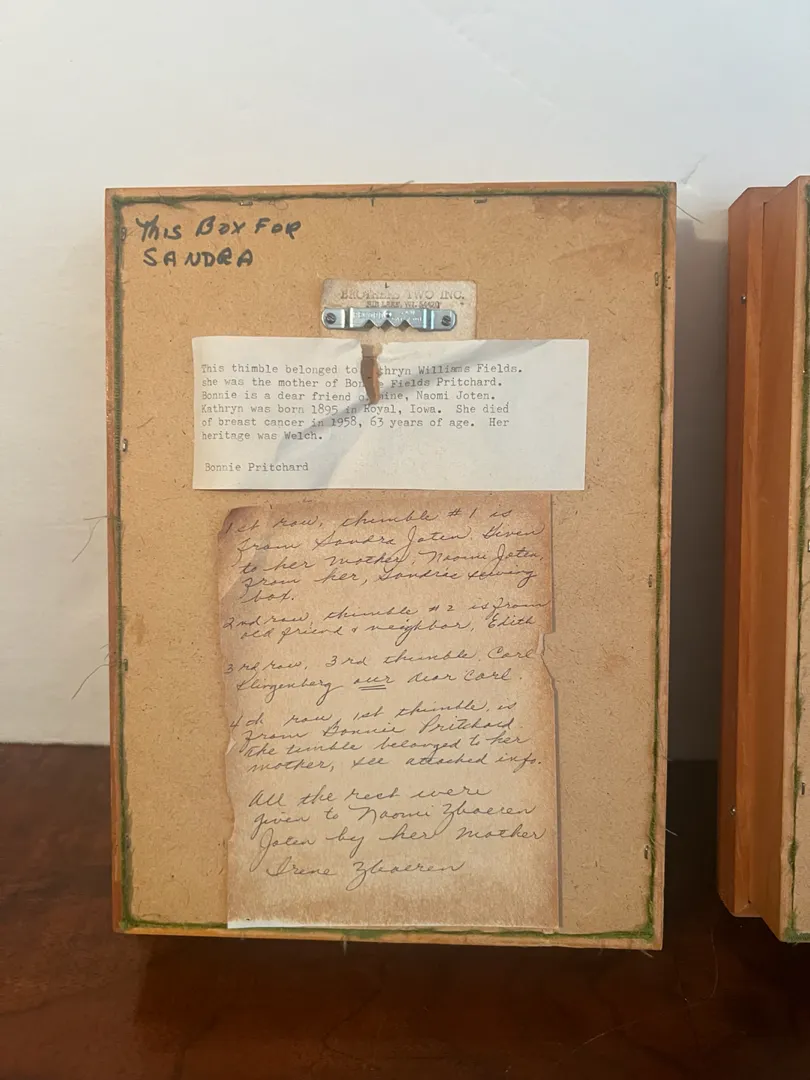 This Box For
SANDRA
BROTHERS TWO INC.
This thimble belonged to thryn Williams Fields.
she was the mother of Bon Fields Pritchard.
Bonnie is a dear friend o mine, Naomi Joten.
Kathryn was born 1895 in Royal, Iowa. She died
of breast cancer in 1958, 63 years of age. Her
heritage was Welch.
Bonnie Pritchard
1st row, thimble #1 is
from Sandra Joten. Given
to her mother, Naomi Joten,
From her, Sandra's sewing
box.
2nd row, thimble #2 is from
old friend & neighbor, Edith
3rd row, 3rd thimble, Carl
Klingenberg our dear Carl.
4th row, 1st thimble, is
From Bonnie Pritchard.
the timble belonged to her
mother, see attached info.
All the rest were
given to Naomi Zboeren
Joten by her mother
Irene Zboeren